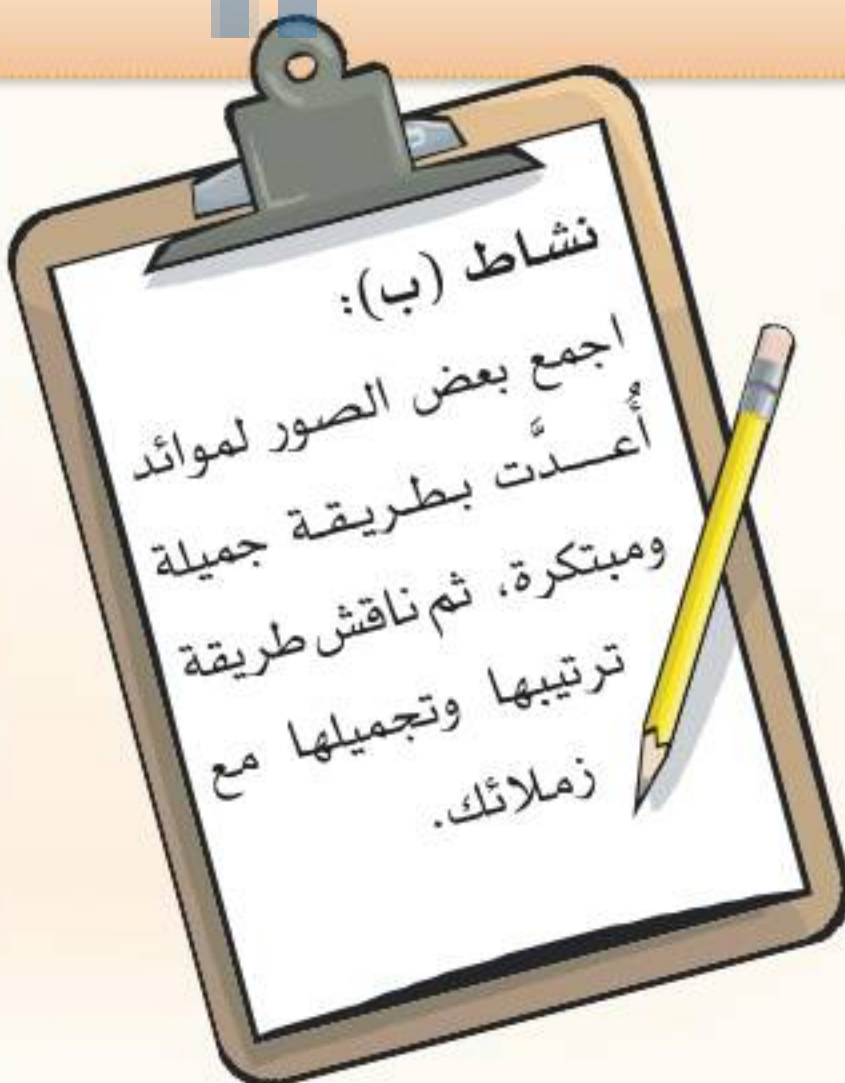 نشاط (ب):
اجمع بعض الصور لموائد
أُعـــدَّت بـطـريـقـة جميلة
ومبتكرة، ثم ناقش طريقة
ترتيبها وتجميلها مع
زملائك.